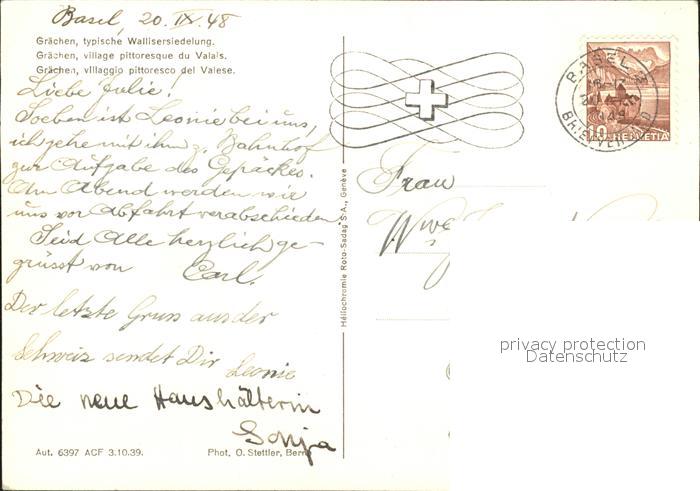 Basel, 20. IX. 48
Grächen, typische Wallisersiedelung.
Grächen, village pittoresque du Valais.
Grächen, villaggio pittoresco del Valese.
Liebe Julie!
Soeben ist Leonie bei uns,
ich gehe mit ihm z. Bahnhof
zur Aufgabe des Gepäckes.
Am Abend werden wir
uns vor Abfahrt verabschieden
Seid Alle herzlich ge-
grüsst von Carl.
Der letzte Gruss aus der
Schweiz sendet Dir Leonie
Die neue Haushälterin
Sonja
Aut. 6397 ACF 3.10.39.
Phot. O. Stettler, Bern
Héliochromie Roto-Sadag S.A., Genève
BASEL
10 HELVETIA
Frau
Wwe
privacy protection
Datenschutz